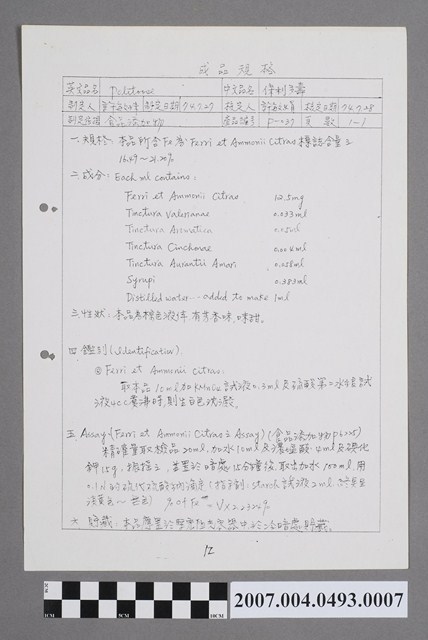 成品規格
英文品名 中文品名 保利多壽
制定人 制定日期 74.7.27 核定人 核定日期 74.7.28
制定依據 食品添加物 產品編号 F-037 頁數 1-1
一. 規格: 本品所含Fe為Ferri et Ammonii Citras標誌含量之
16.49～21.20%
二. 成分: Each ml contains:
Ferri et Ammonii Citras 12.5mg
Tinctura Valerianae 0.033ml
Tinctura Aromatica
Tinctura Cinchonae 0.004ml
Tinctura Aurantii Amari 0.028ml
Syrupi 0.383ml
Distilled water...added to make 1ml
三. 性狀: 本品為棕色液体, 有芳香味, 味甜。
四. 鑑別 (Identification).
@ Ferri et Ammonii Citras:
取本品1cml加KMnO4試液0.3ml及硫酸第二水銀試
液4cc煮沸時, 則生白色沈澱.
五. Assay: (Ferri et Ammonii Citras之Assay) (食品添加物P6225)
精確量取檢品20ml, 加水10ml及濃鹽酸4ml及碘化
鉀15g, 振搖之, 並置於暗處15分鐘後, 取出加水100ml, 用
0.1N的硫代硫酸鈉滴定 (指示劑: starch試液2ml,
% of Fe = V×2.2320%
六. 貯藏: 本品應置於緊密 中, 於冷暗處貯藏.
12
1CM 5CM 10CM
2007.004.0493.0007